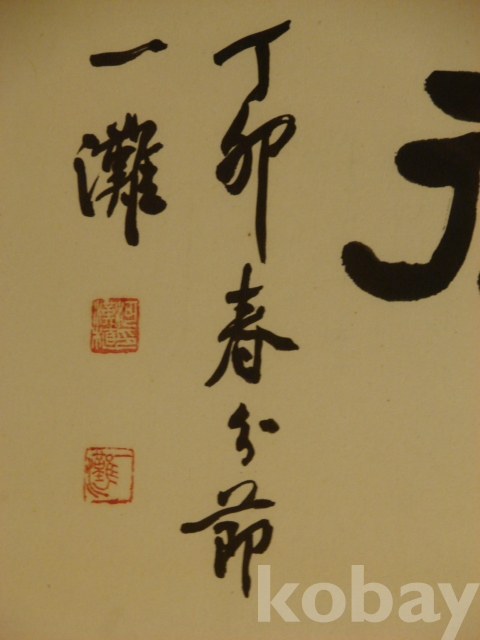 丁卯春分節
一灘
一灘
kobay